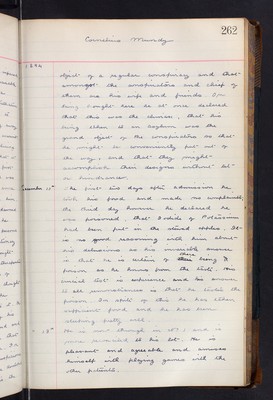 262
Cornelius Mundy
1894
object of a regular conspiracy and that
amongst the conspirators and chief of
them are his wife and friends. On
being brought here he at once declared
that this was the climax, that his
being taken to an asylum was the
grand object of the conspirators so that
he might be conveniently put out of
the way, and that they might
accomplish their designs without let
or hindrance.
December 15th The first six days after admission he
took his food and made no complaint,
the third day however he declared he
was poisoned, that Iodide of Potassium
had been put in the stewed apples. It
is no good reasoning with him about
his delusions as his invariable answer
is that he is certain of there being
poison as he knows from the taste. His
crucial test is experience and his answer
to all is that he tastes the
poison. In spite of this he has taken
sufficient food and he has been
sleeping pretty well.
18th He is now through in No 1 and is
more reconciled to his lot. He is
pleasant and agreeable and amuses
himself with playing games with the
other patients.